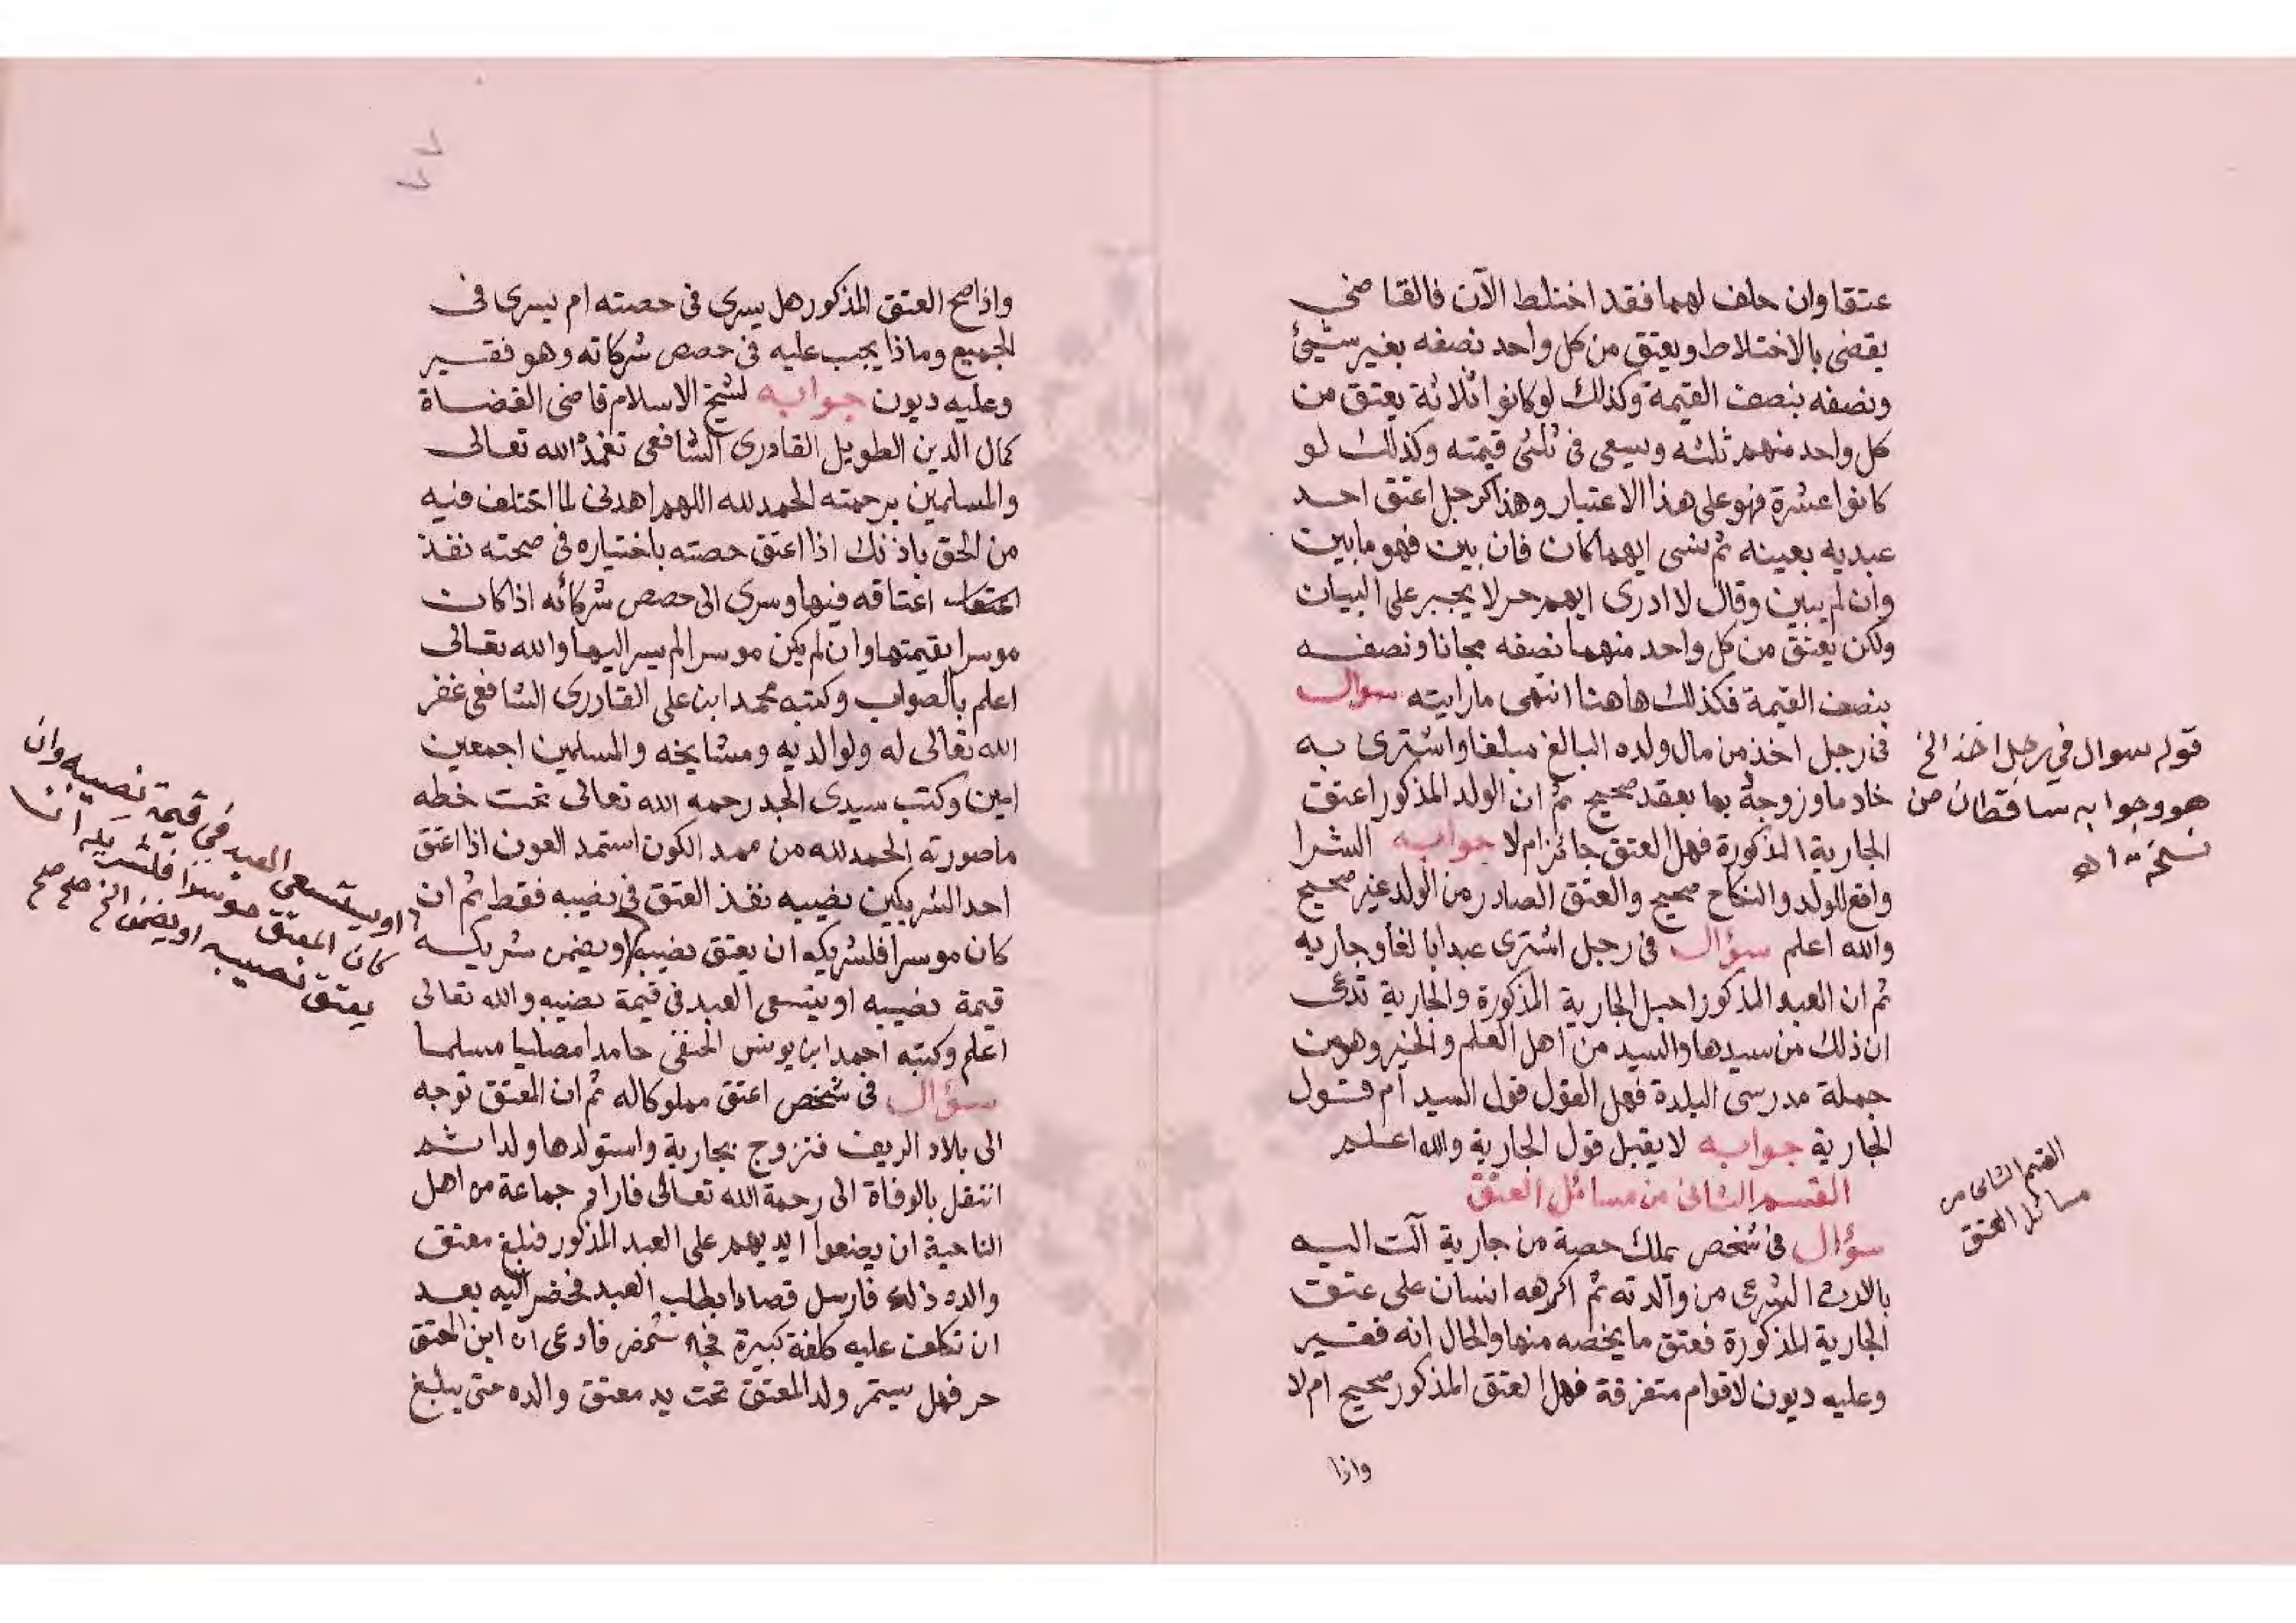 عتقا وان حلف لهما فقد اختلط الآن فالقاضي
يقضى بالاختلاط ويعتق من كل واحد نصفه بغير شيئ
ونصفه بنصف القيمة وكذلك لو كانوا ثلاثة يعتق من
كل واحد منهم ثلثه ويسعى فى ثلثى قيمته وكذلك لو
كانوا عشرة فهو على هذا الاعتبار وهذا كرجل اعتق احد
عبديه بعينه ثم نسى ايهما كان فان بين فهو ما بين
وان لم يبين وقال لا ادرى ايهم حر لا يجبر على البيان
ولكن يعتق من كل واحد منهما نصفه مجانا ونصفه
بنصف القيمة فكذلك هاهنا انتهى ما رايته سوال
فى رجل اخذ من مال ولده البالغ مبلغا واشترى به
خادما وزوجه بها بعقد صحيح ثم ان الولد المذكور اعتق
الجارية المذكورة فهل العتق جائز ام لا جوابه الشرا
واقع للولد والنكاح صحيح والعتق الصادر من الولد غير صحيح
والله اعلم سؤال فى رجل اشترى عبدا بالغا وجاريه
ثم ان العبد المذكور احبل الجارية المذكورة والجارية تدعى
ان ذلك من سيدها والسيد من اهل العلم والخير وهو من
جملة مدرسى البلدة فهل القول قول السيد ام قول
الجارية جوابه لا يقبل قول الجارية والله اعلم
القسم الثانى من مسائل العتق
سؤال فى شخص يملك حصة من جارية آلت اليه
بالارث الشرعى من والدته ثم اكرهه انسان على عتق
الجارية المذكورة فعتق ما يخصه منها والحال انه فقير
وعليه ديون لاقوام متفرقة فهل العتق المذكور صحيح ام لا
واذا
قوله سوال في رجل اخذ الخ
هو وجوابه ساقطان من
نسخة اه
القسم الثانى من
مسائل العتق
واذا صح العتق المذكور هل يسرى فى حصته ام يسرى فى
الجميع وماذا يجب عليه فى حصص شركاته وهو فقير
وعليه ديون جوابه لشيخ الاسلام قاضى القضاة
كمال الدين الطويل القادرى الشافعى تغمده الله تعالى
والمسلمين برحمته الحمد لله اللهم اهدنى لما اختلف فيه
من الحق باذنك اذا اعتق حصته باختياره فى صحته نفذ
اعتاقه فيها وسرى الى حصص شركائه اذا كان
موسرا بقيمتها وان لم يكن موسرا لم يسر اليها والله تعالى
اعلم بالصواب وكتبه محمد ابن على القادرى الشافعى غفر
الله تعالى له ولوالديه ومشايخه والمسلمين اجمعين
امين وكتب سيدى الجد رحمه الله تعالى تحت خطه
ما صورته الحمد لله من ممد الكون استمد العون اذا اعتق
احد الشريكين نصيبه نفذ العتق فى نصيبه فقط ثم ان
كان موسرا فلشريكه ان يعتق نصيبه او يضمن شريكه
قيمة نصيبه او يتسعى العبد فى قيمة نصيبه والله تعالى
اعلم وكتبه احمد ابن يونس الحنفى حامدا مصليا مسلما
سؤال فى شخص اعتق مملوكا له ثم ان المعتق توجه
الى بلاد الريف فتزوج بجارية واستولدها ولدا ثم
انتقل بالوفاة الى رحمة الله تعالى فاراد جماعة من اهل
الناحية ان يضعوا ايديهم على العبد المذكور فبلغ معتق
والده ذلك فارسل قصادا بطلب العبد فحضر اليه بعد
ان تكلف عليه كلفة كبيرة فجاء شخص فادعى ان ابن المعتق
حر فهل يستمر ولد المعتق تحت يد معتق والده حتى يبلغ
او يستسعى العبد في قيمة نصيبه وان
كان المعتق موسرا فلشريكه ان
يعتق نصيبه او يضمن الخ صح صح